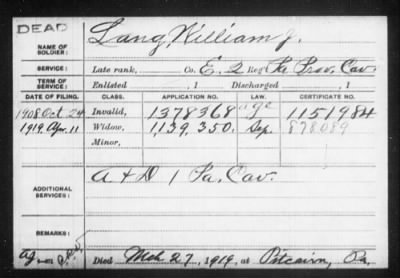 DEAD
NAME OF SOLDIER: Lang William J.
SERVICE: Late rank, Co. E, 2 Reg't Pa Prov. Cav.
TERM OF SERVICE: Enlisted , 1 Discharged , 1
DATE OF FILING. CLASS. APPLICATION NO. LAW. CERTIFICATE NO.
1908 Oct. 24 Invalid, 1378368 age 1151984
1919, Apr. 11 Widow, 1139,350. Sep. 878089
Minor,
ADDITIONAL SERVICES: A & D 1 Pa. Cav.
Died Mch 27, 1919, at Pitcairn, Pa.